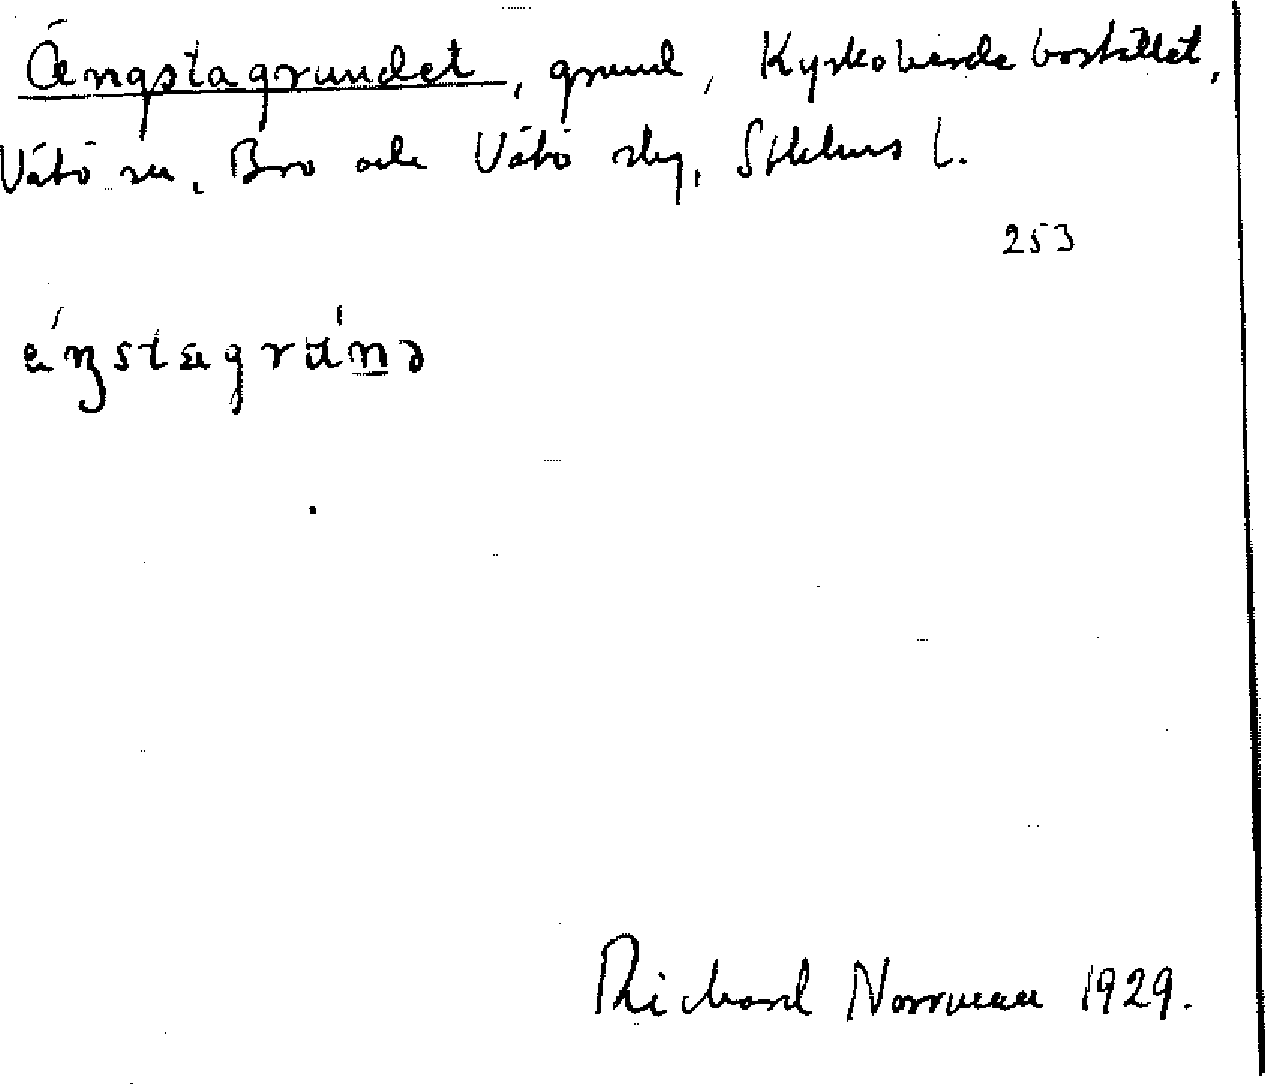 Ängstagrundet, grund, Kyrkoherdebostället,
Vätö sn, Bro och Vätö skg, Sthlms l.
253
ä́ŋstagrún̲ə
Richard Norrman 1929.